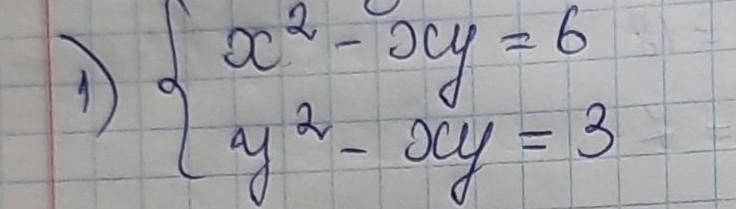 1) { x² - xy = 6
y² - xy = 3